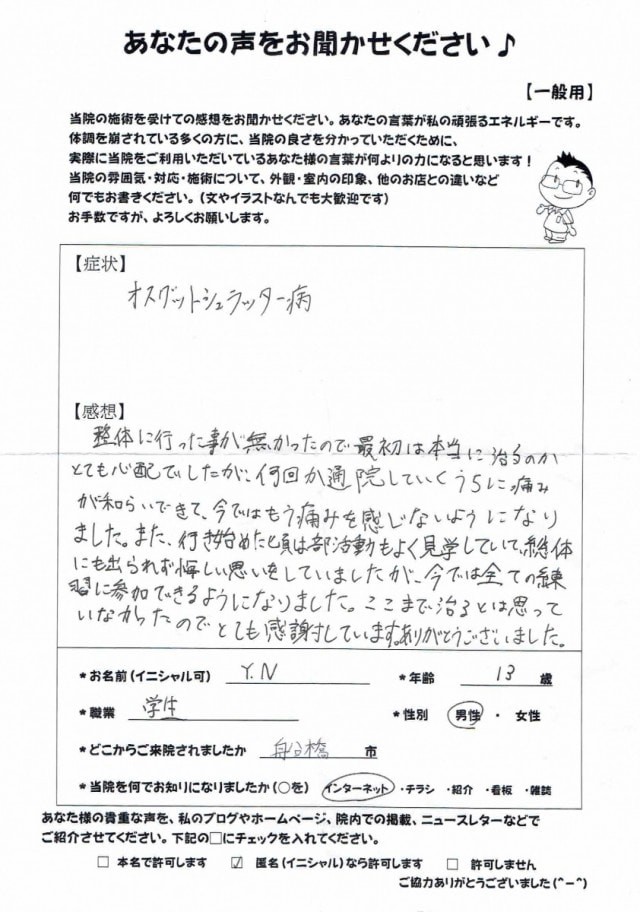 あなたの声をお聞かせください♪
【一般用】
当院の施術を受けての感想をお聞かせください。あなたの言葉が私の頑張るエネルギーです。
体調を崩されている多くの方に、当院の良さを分かっていただくために、
実際に当院をご利用いただいているあなた様の言葉が何よりの力になると思います！
当院の雰囲気・対応・施術について、外観・室内の印象、他のお店との違いなど
何でもお書きください。（文やイラストなんでも大歓迎です）
お手数ですが、よろしくお願いします。
【症状】
オスグットシュラッター病
【感想】
整体に行った事が無かったので最初は本当に治るのか
とても心配でしたが、何回か通院していくうちに痛み
が和らいできて、今ではもう痛みを感じないようになり
ました。また、行き始めた頃は部活動もよく見学していて、総体
にも出られず悔しい思いをしていましたが、今では全ての練
習に参加できるようになりました。ここまで治るとは思って
いなかったのでとても感謝しています。ありがとうございました。
*お名前（イニシャル可） Y.N *年齢 13 歳
*職業 学生 *性別 男性 ・ 女性
*どこからご来院されましたか 船橋 市
*当院を何でお知りになりましたか（○を） インターネット ・チラシ ・紹介 ・看板 ・雑誌
あなた様の貴重な声を、私のブログやホームページ、院内での掲載、ニュースレターなどで
ご紹介させてください。下記の□にチェックを入れてください。
□ 本名で許可します ☑ 匿名（イニシャル）なら許可します □ 許可しません
ご協力ありがとうございました（^－^）